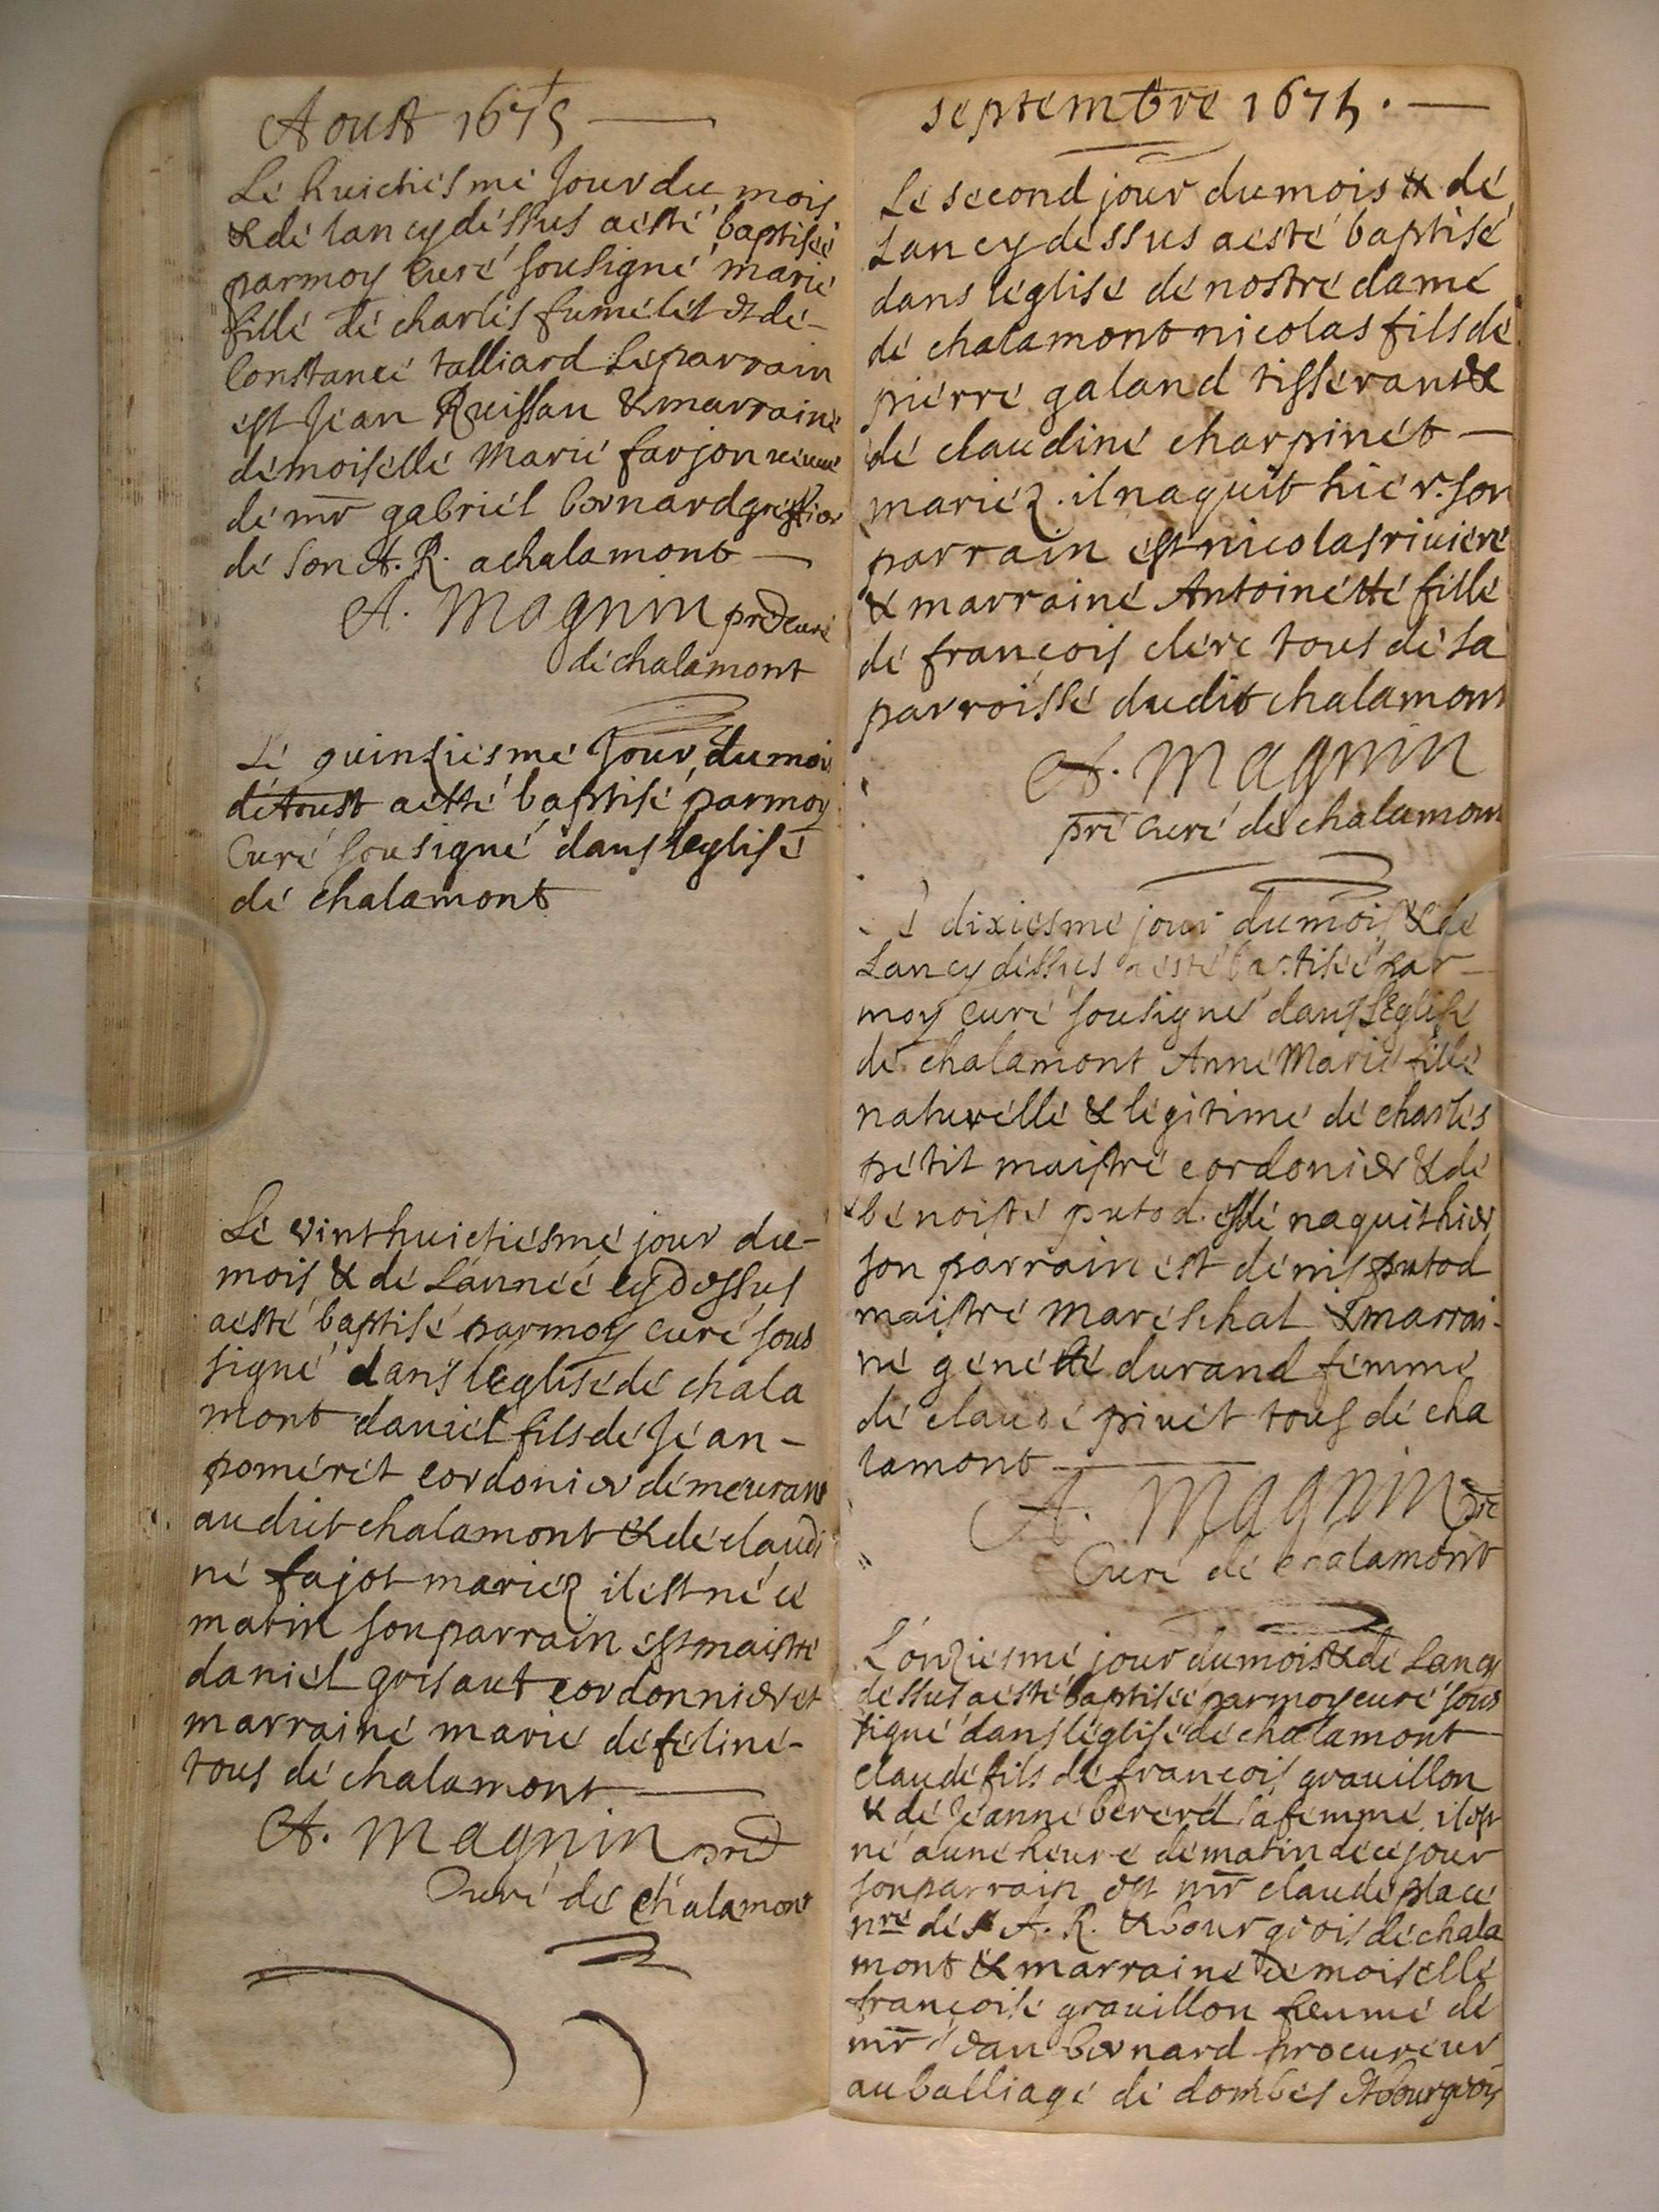 Aoust 1675
Le huictiesme Jour du mois
& de lan cy dessus a esté baptisée
par moy Curé sousigné marie
fille de charles fumélét et de
Constance talliard Le parrain
est Jean Ruissau & marraine
demoiselle Marie farjon veuve
de mr gabriel bernard greffier
de Son A. R. a chalamont
A. Magnin pre Curé
de chalamont
Le quinziesme Jour du mois
d'Aoust a esté baptisé par moy
Curé sousigné dans leglise
de chalamont
Le vinthuictiesme jour du
mois & de L'année cy dessus
a esté baptisé par moy curé sous
signé dans leglise de chala
mont daniel fils de Jean
pomerét cordonier demeurant
audit chalamont & de claudi
ne fajot mariez il est né ce
matin son parrain est maistre
daniel grisaut cordonnier et
marraine marie deféline
tous de chalamont
A. Magnin pre
Curé de chalamont
septembre 1675.
Le second jour du mois & de
Lan cy dessus a esté baptisé
dans léglise de nostre dame
de chalamont nicolas fils de
pierre galand tisserant &
de claudine charpinét
mariez. il naquit hier. son
parrain est nicolas riviere
& marraine Antoinette fille
de françois clerc tous de la
parroisse dudit chalamont
A. Magnin
pre Curé de chalamont
e dixiesme jour du mois & de
Lan cy dessus a esté baptisée par
moy curé sousigné dans Léglise
de chalamont Anne Marie fille
naturelle & légitime de charles
pétit maistre cordonier & de
bénoiste putod. elle naquit hier
son parrain est dénis putod
maistre maréschal & marrai-
ne genétte durand femme
de claude pivét tous de cha
lamont
A. Magnin pre
Curé de chalamont
L'onziesme jour du mois & de Lan cy
dessus a esté baptisée par moy curé sous
signé dans léglise de chalamont
claude fils de françois gravillon
& de Jeanne bererd sa femme. il est
né a une heure de matin de ce jour
son parrain est mr claude place
nre de S A. R. & bourgeois de chala
mont & marraine demoiselle
françoise gravillon femme de
mr Jean bernard procureur
au balliage de dombes & bourgeois